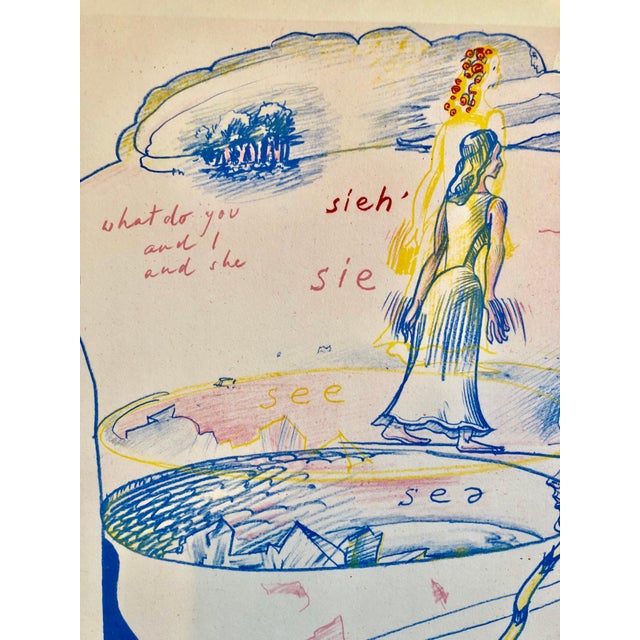 what do you
and I
and she
sieh'
sie
see
sea